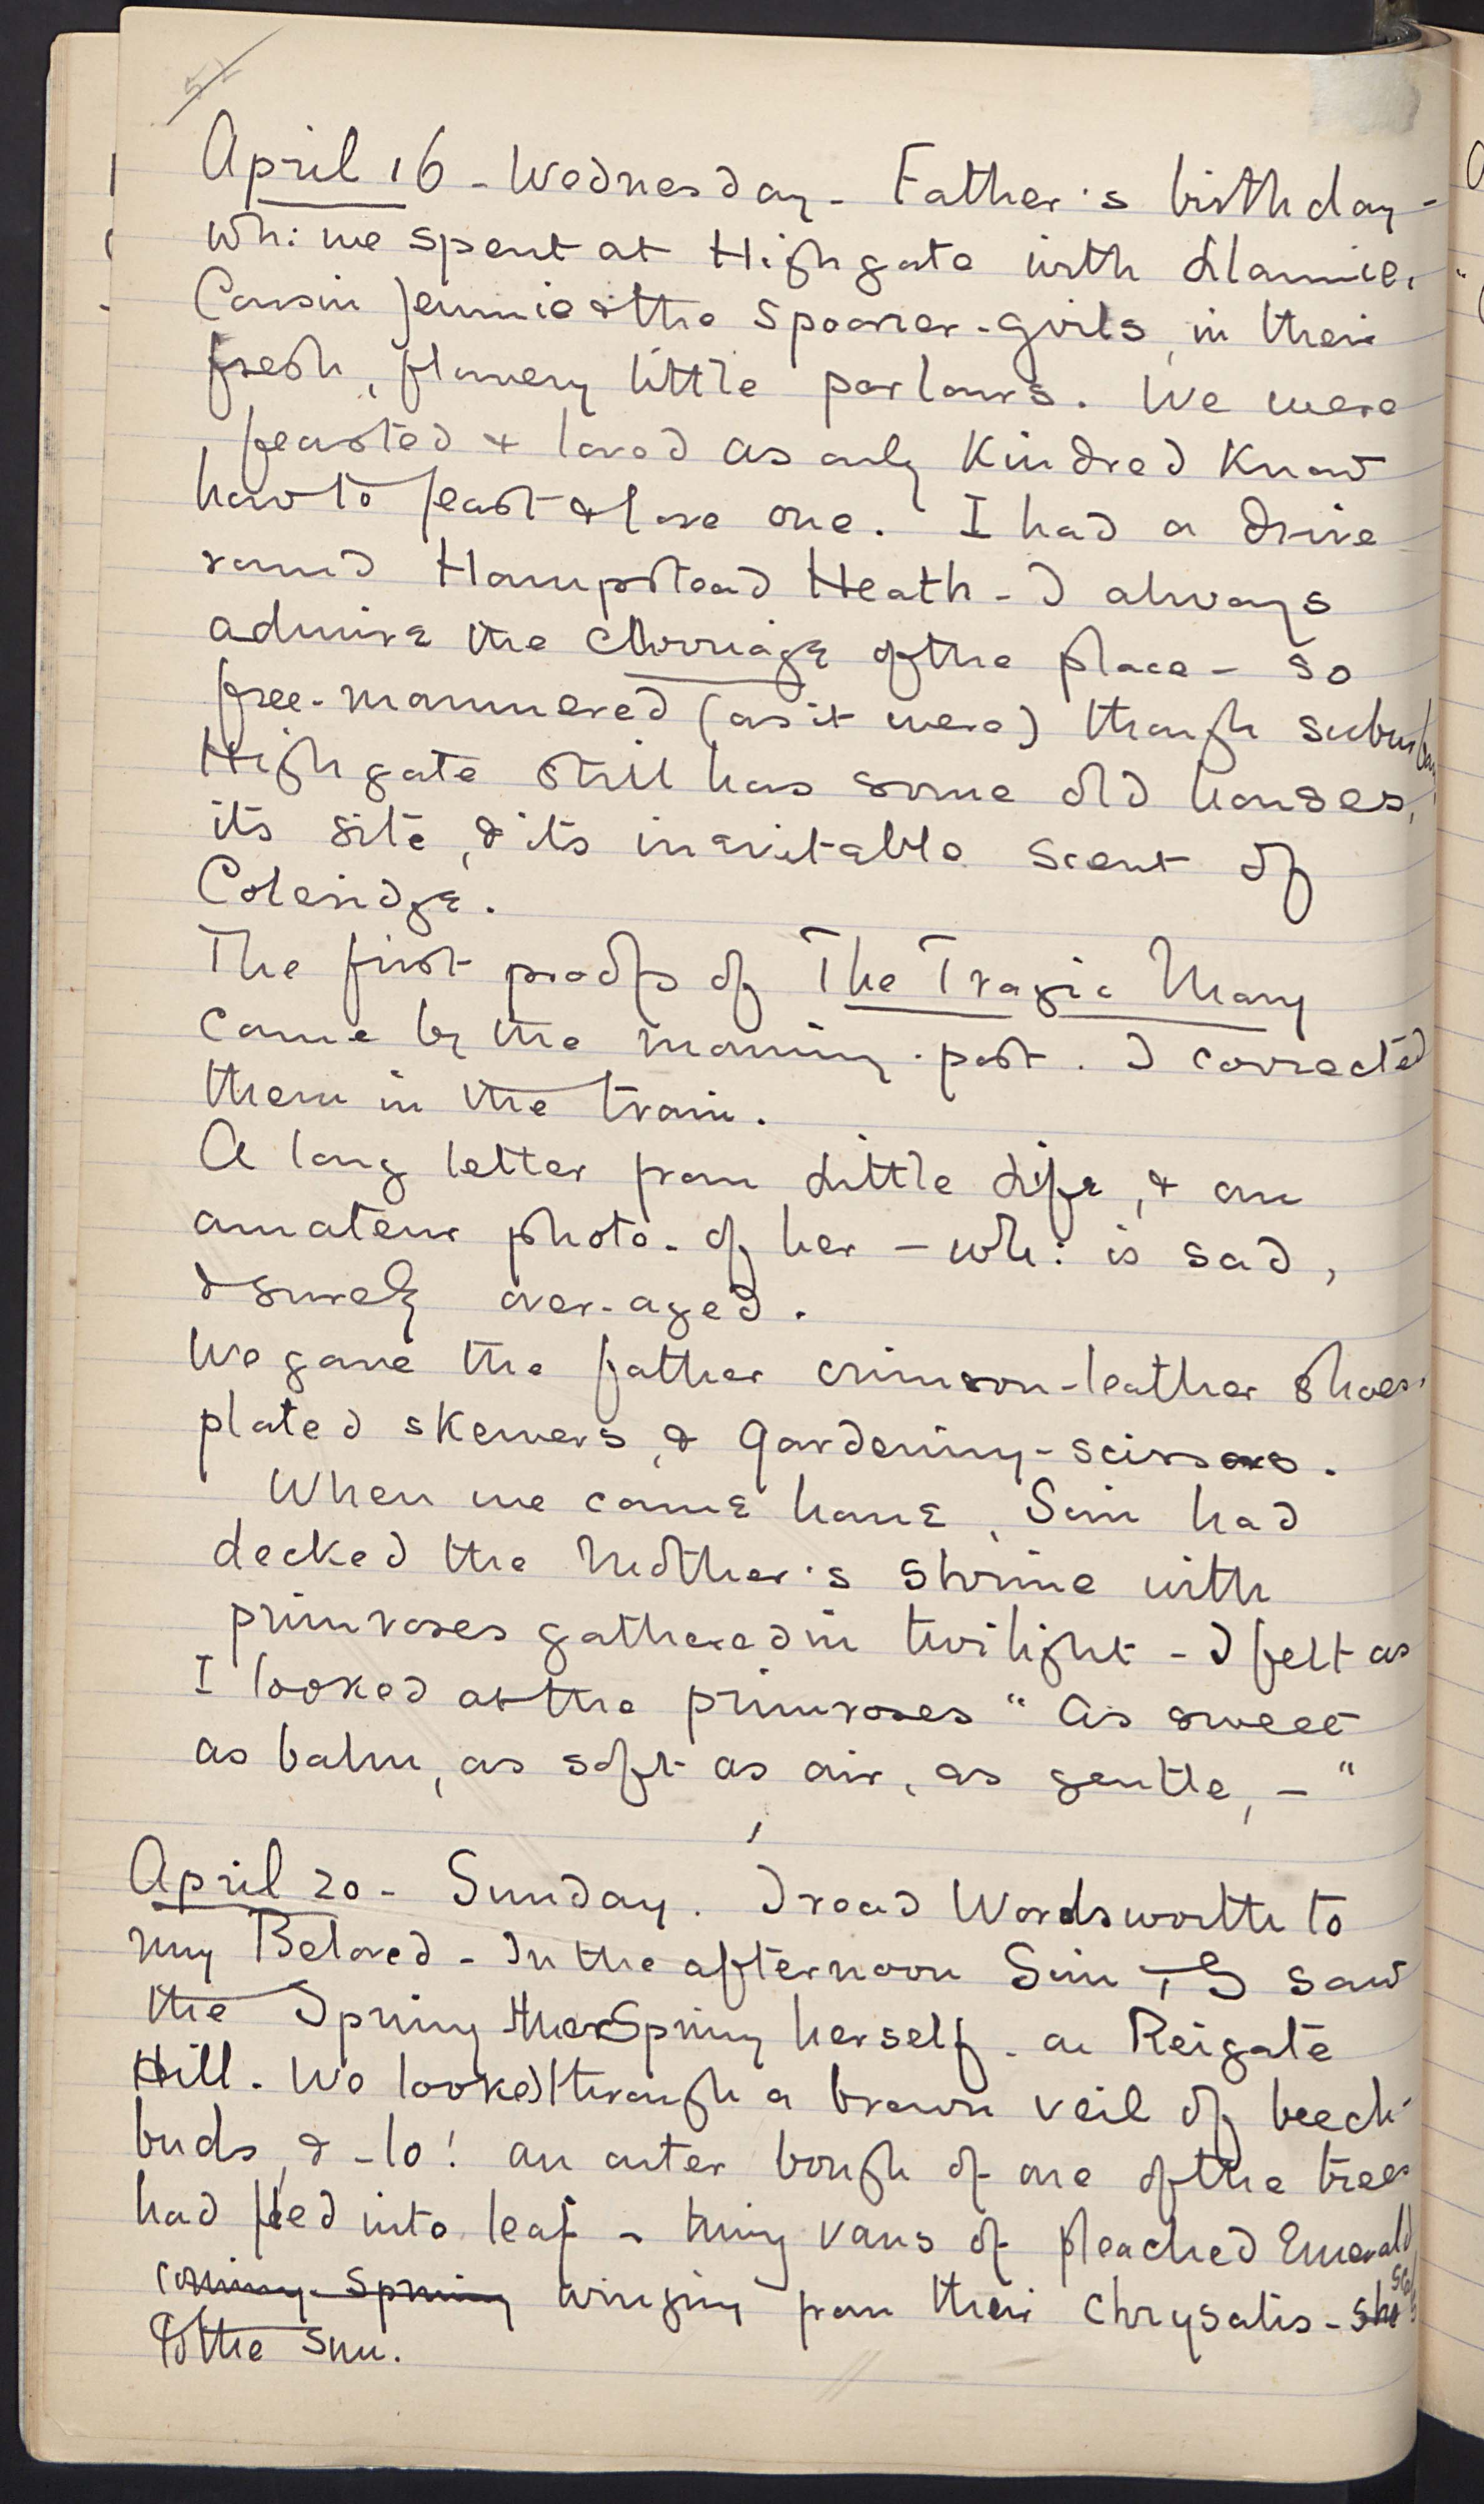 April 16 - Wednesday - Father's birthday -
wh: we spent at Highgate with Mannie,
Cousin Jennie & the Spooner-girls, in their
fresh, flowery little parlours. We were
feasted & loved as only Kindred Know
how to feast & love one. I had a drive
round Hampstead Heath - I always
admire the of the place - so
free-mannered (as it were) though suburban,
Highgate still has some old houses,
its site, & its inevitable scent of
Coleridge.
The first proofs of The Tragic Mary
came by the morning-post. I corrected
them in the train.
A long letter from Little Life, & an
amateur photo. of her - wh: is sad,
& surely over-aged.
We gave the father crimson-leather shoes,
plated skewers, & gardening-scissors.
When we came home, Sim had
decked the Mother's shrine with
primroses gathered in twilight - I felt as
I looked at the primroses "As sweet
as balm, as soft as air, as gentle, - "
April 20 - Sunday. I read Wordsworth to
my Beloved - In the afternoon Sim & I saw
the Spring the Spring herself - on Reigate
Hill. We looked through a brown veil of beech-
buds, & - lo! an outer bough of one of the trees
had fled into leaf - tiny vans of pleached Emerald
coming Spring winging from their chrysalis - scales
to the sun.